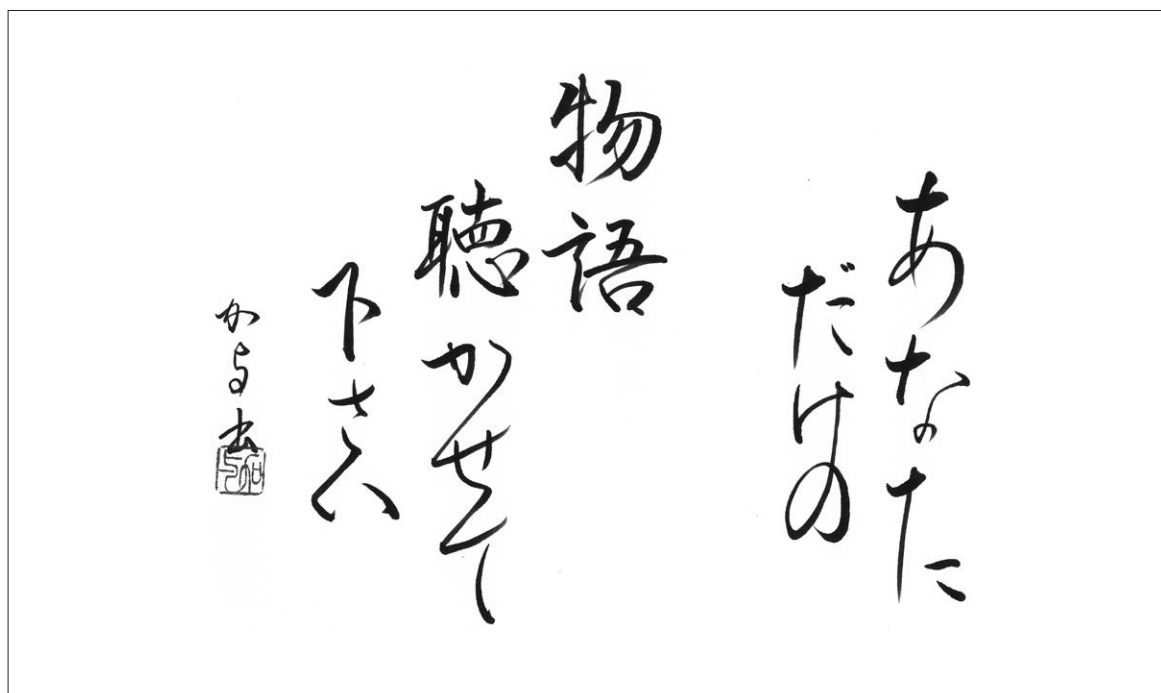 あなた
だけの
物語
聴かせて
下さい